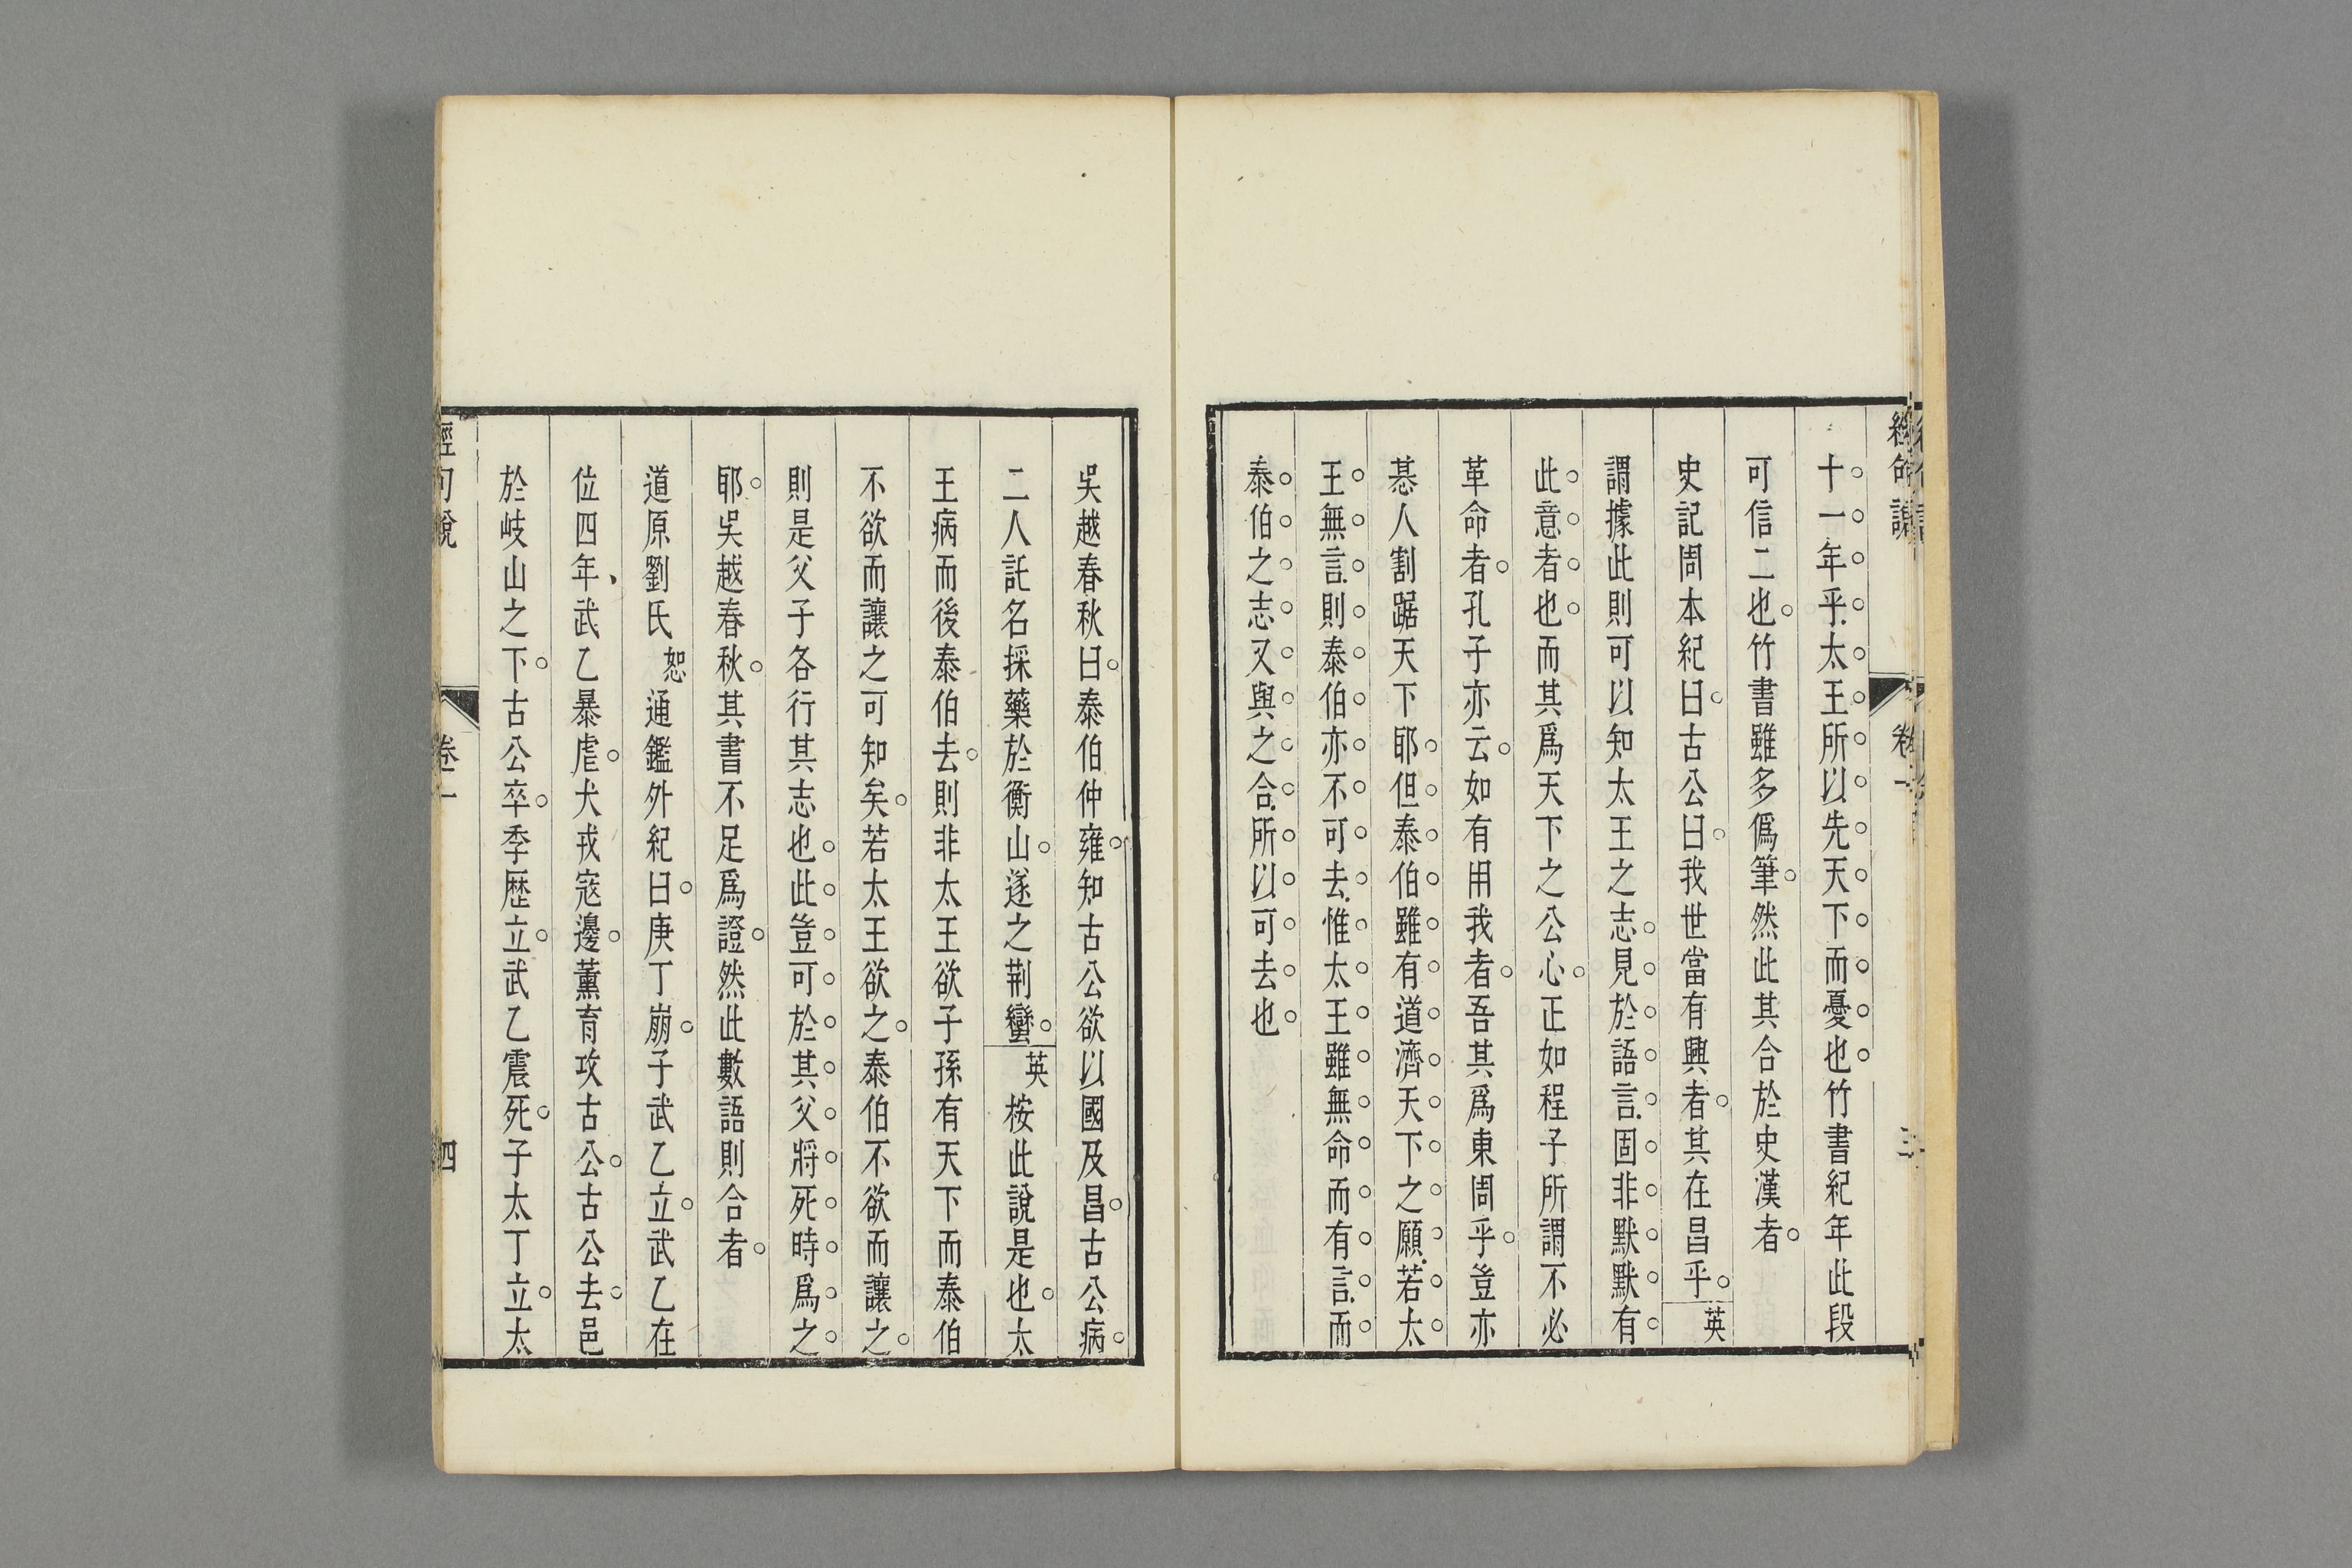 十一年乎太王所以先天下而憂也竹書紀年此段
可信二也竹書雖多僞筆然此其合於史漢者
史記周本紀曰古公曰我世當有興者其在昌乎英
謂據此則可以知太王之志見於語言固非默默有
此意者也而其爲天下之公心正如程子所謂不必
革命者孔子亦云如有用我者吾其爲東周乎豈亦
惎人割踞天下耶但泰伯雖有道濟天下之願若太
王無言則泰伯亦不可去惟太王雖無命而有言而
泰伯之志又與之合所以可去也
吳越春秋曰泰伯仲雍知古公欲以國及昌古公病
二人託名採藥於衡山遂之荆蠻英桉此說是也太
王病而後泰伯去則非太王欲子孫有天下而泰伯
不欲而讓之可知矣若太王欲之泰伯不欲而讓之
則是父子各行其志也此豈可於其父將死時爲之
耶吳越春秋其書不足爲證然此數語則合者
道原劉氏恕通鑑外紀曰庚丁崩子武乙立武乙在
位四年武乙暴虐犬戎寇邊薰育攻古公古公去邑
於岐山之下古公卒季歷立武乙震死子太丁立太
經句說 卷一 四